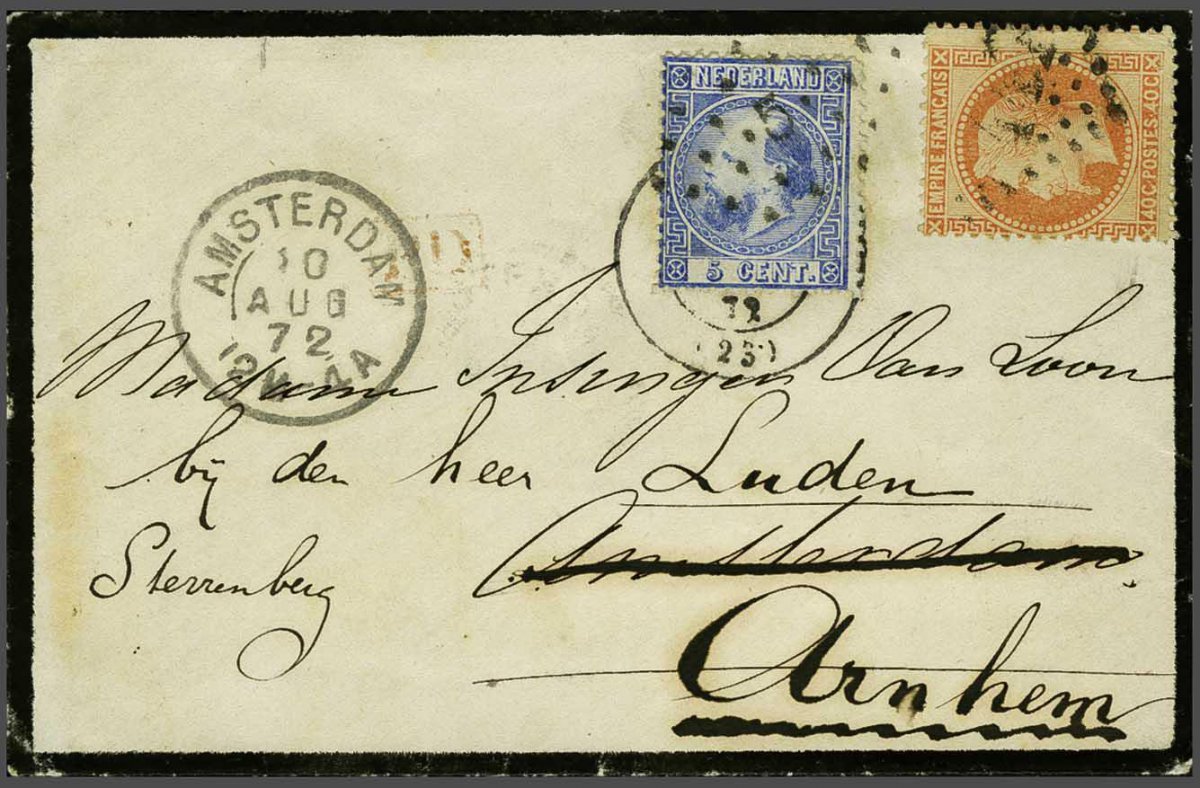 NEDERLAND
5 CENT.
EMPIRE FRANCAIS
40C POSTES 40C
AMSTERDAM
10
AUG
72
72
(23)
Madame Insinger Van Loon
bij den heer Luden
Sterrenberg
Amsterdam
Arnhem